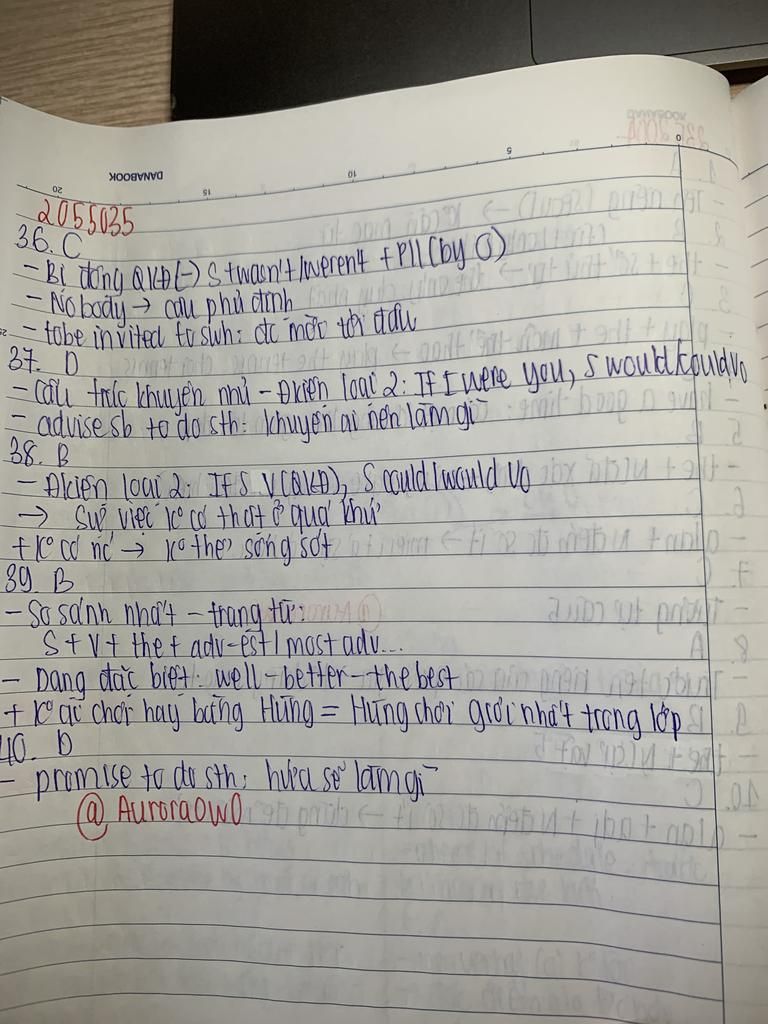 DANABOOK
0 5 10 15 20
2055035
36. C
- Bị động QKĐ(-) S+wasn't/weren't +PII (by O)
- Nobody → câu phủ định
- tobe invited to swh: đc mời tới đâu
37. D
- Cấu trúc khuyên nhủ - Đkiện loại 2: If I were you, S would/could Vo
- advise sb to do sth: khuyên ai nên làm gì
38. B
- Đkiện loại 2: If S V(QKĐ), S could/would Vo
→ Sự việc ko có thật ở quá khứ
+ ko có nc → ko thể sống sót
39. B
- So sánh nhất - trạng từ:
S + V + the + adv-est/most adv...
- Dạng đặc biệt: well-better-the best
+ Ko ai chơi hay bằng Hùng = Hùng chơi giỏi nhất trong lớp
40. D
- promise to do sth: hứa sẽ làm gì
@Aurora0w0